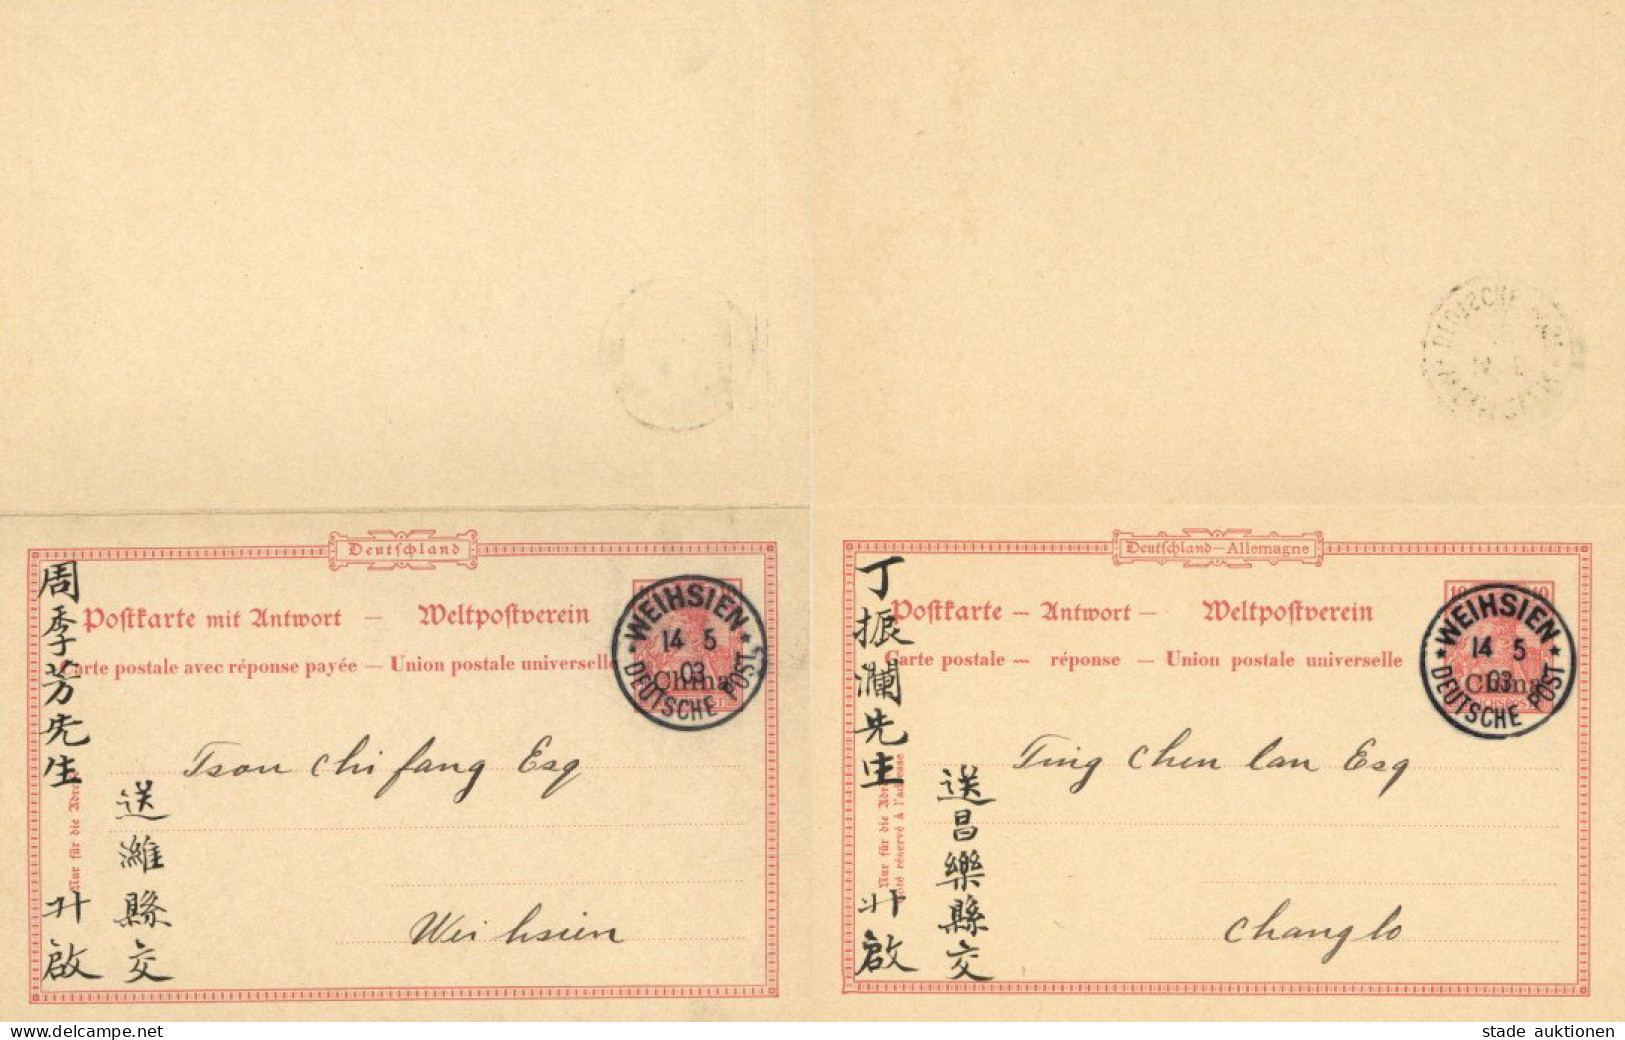 Deutschland
Postkarte mit Antwort — Weltpostverein
Carte postale avec réponse payée — Union postale universelle
WEIHSIEN
14 5
03
DEUTSCHE POST
China
周季芳先生 升啟
送濰縣交
Nur für die
Tsou Chi fang Esq
Wei hsien
Deutschland—Allemagne
Postkarte — Antwort — Weltpostverein
Carte postale — réponse — Union postale universelle
10
WEIHSIEN
14 5
03
DEUTSCHE POST
China
丁振瀾先生 升啟
送昌樂縣交
Nur für die
réservé à l'adresse
Ting Chen lan Esq
Changlo
www.delcampe.net
stade auktionen